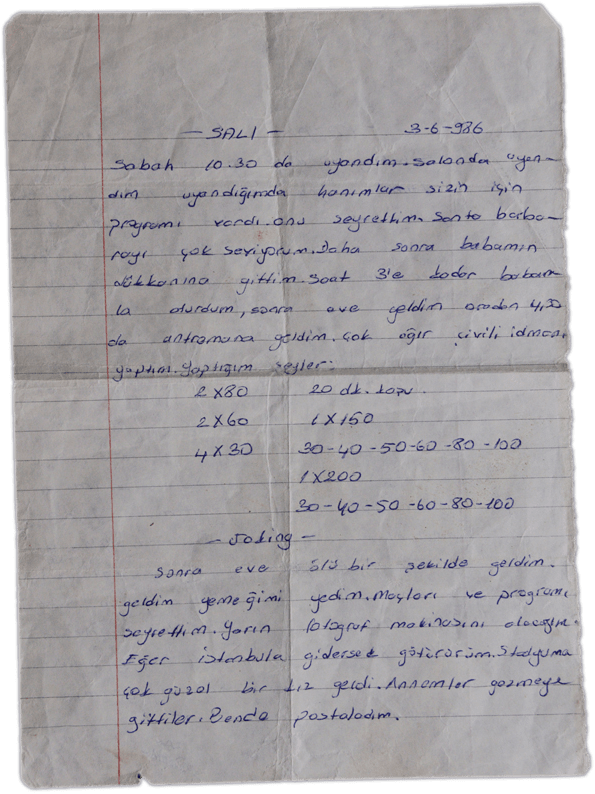 - SALI - 3-6-986
Sabah 10.30 da uyandım. Salonda uyan-
dım uyandığımda hanımlar sizin için
programı vardı. onu seyrettim. Santa barba-
rayı çok seviyorum. Daha sonra babamın
dükkanına gittim. Saat 3'e kadar babam-
la oturdum, sonra eve geldim oradan 4,30
da antremana geldim. Çok ağır çivili idman
yaptım. Yaptığım şeyler:
2 X 80 20 dk. koşu.
2 X 60 1 X 150
4 X 30 30-40-50-60-80-100
1 X 200
30-40-50-60-80-100
- Joking -
Sonra eve ölü bir şekilde geldim.
geldim yemeğimi yedim. Maçları ve programı
seyrettim. Yarın fotoğraf makinasını alacağım.
Eğer İstanbula gidersek götürürüm. Stadyuma
çok güzel bir kız geldi. Annemler gezmeye
gittiler. Bende postaladım.